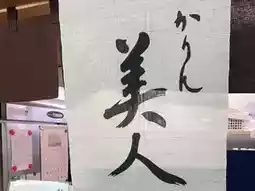 かりん
美人